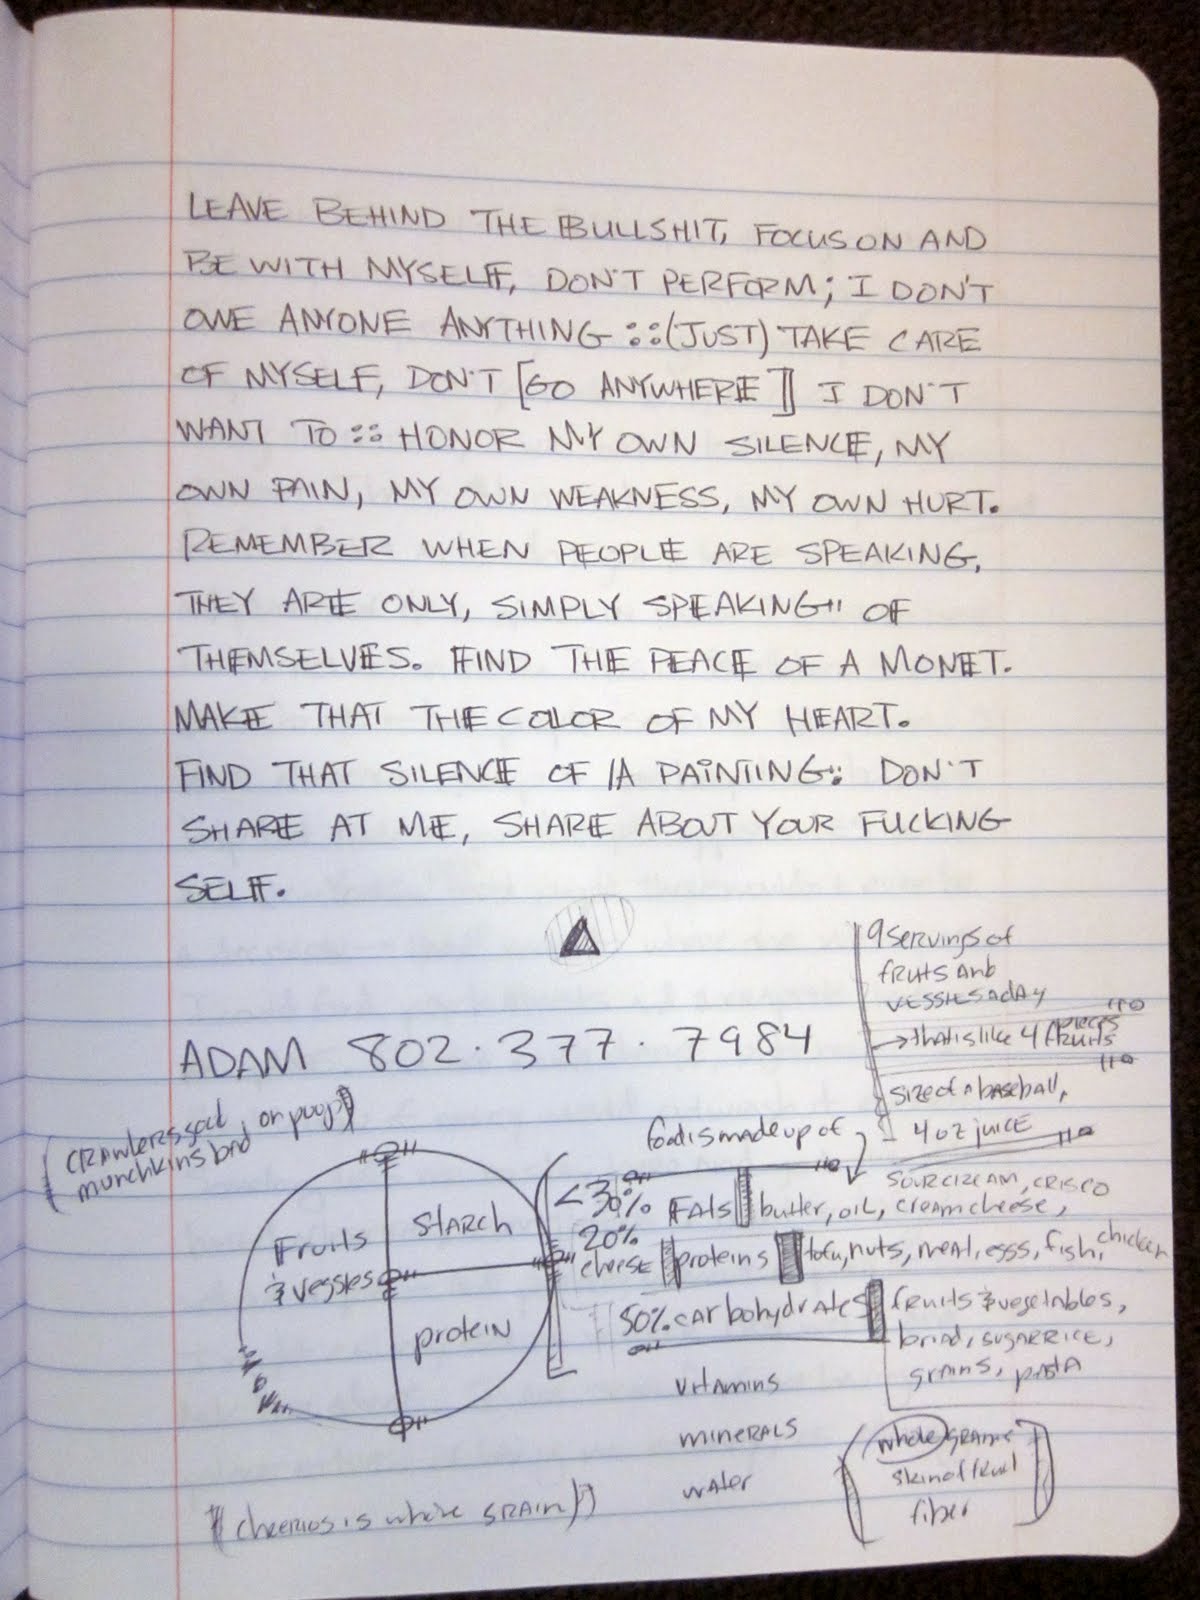 LEAVE BEHIND THE BULLSHIT, FOCUS ON AND
BE WITH MYSELF, DON'T PERFORM; I DON'T
OWE ANYONE ANYTHING :::(JUST) TAKE CARE
OF MYSELF, DON'T [GO ANYWHERE]] I DON'T
WANT TO :: HONOR MY OWN SILENCE, MY
OWN PAIN, MY OWN WEAKNESS, MY OWN HURT.
REMEMBER WHEN PEOPLE ARE SPEAKING,
THEY ARE ONLY, SIMPLY SPEAKING OF
THEMSELVES. FIND THE PEACE OF A MONET.
MAKE THAT THE COLOR OF MY HEART.
FIND THAT SILENCE OF /A PAINTING:: DON'T
SHARE AT ME, SHARE ABOUT YOUR FUCKING
SELF.
9 servings of
fruits and
veggies a day
→ that is like 4 pieces
fruits
size of a baseball,
4 oz juice
ADAM 802.377.7984
(crawlers good, or poop)
munchkins bad
Fruits
& veggies
starch
protein
food is made up of
<30% Fats
sour cream, crisco
butter, oil, cream cheese,
20%
cheese proteins tofu, nuts, meat, eggs, fish, chicken
50% carbohydrates
fruits & vegetables,
bread, sugar rice,
grains, pasta
vitamins
minerals
water
(whole grains
skin of fruit
fiber)
(cheerios is whole grain))